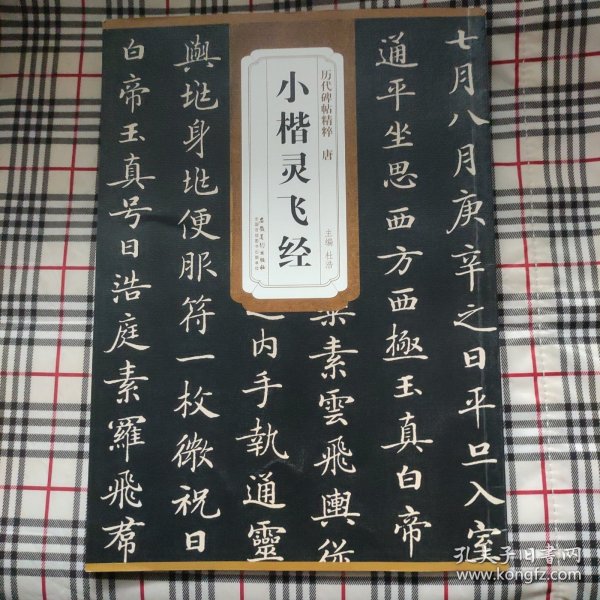 历代碑帖精粹 唐
小楷灵飞经
主编 杜浩
安徽美术出版社
七月八月庚辛之日平旦入室
通平坐思西方西極玉真白帝
素雲飛輿從
内手執通靈
與地身地便服符一枚微祝曰
白帝玉真号曰浩庭素羅飛裙
孔夫子旧书网
www.kongfz.com